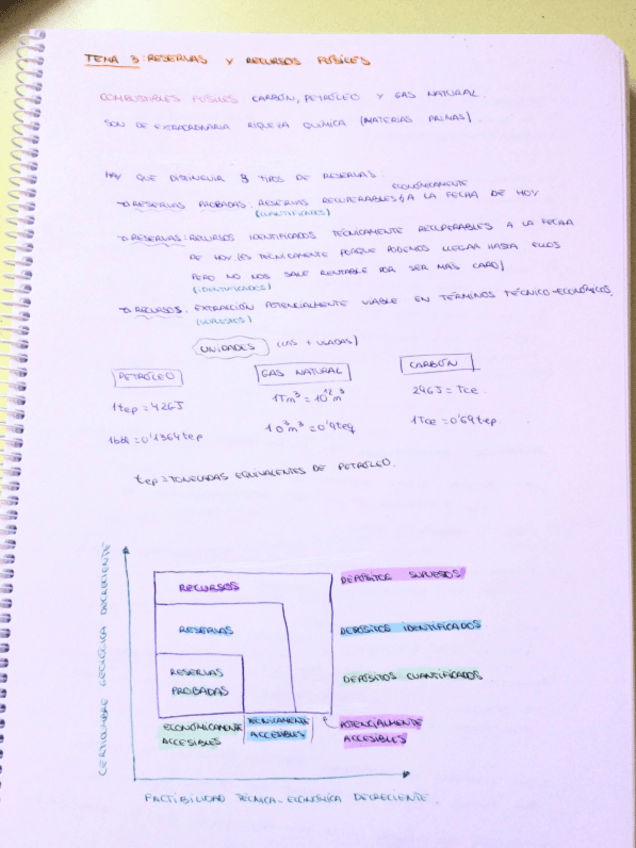 TEMA 3: RESERVAS Y RECURSOS FÓSILES
COMBUSTIBLES FÓSILES CARBÓN, PETRÓLEO Y GAS NATURAL.
SON DE EXTRAORDINARIA RIQUEZA QUÍMICA (MATERIAS PRIMAS)
HAY QUE DISTINGUIR 3 TIPOS DE RESERVAS:
ECONÓMICAMENTE
RESERVAS PROBADAS: RESERVAS RECUPERABLES A LA FECHA DE HOY
(CUANTIFICADOS)
RESERVAS: RECURSOS IDENTIFICADOS TÉCNICAMENTE RECUPERABLES A LA FECHA
DE HOY. (ES TÉCNICAMENTE PORQUE PODEMOS LLEGAR HASTA ELLOS
PERO NO NOS SALE RENTABLE POR SER MÁS CARO)
(IDENTIFICADOS)
RECURSOS: EXTRACCIÓN POTENCIALMENTE VIABLE EN TÉRMINOS TÉCNICO-ECONÓMICOS.
(SUPUESTOS)
UNIDADES (LAS + USADAS)
PETRÓLEO GAS NATURAL CARBÓN
1tep = 42GJ 1Tm³ = 10¹²m³ 29GJ = Tce
1bbl = 0'1364tep 10³m³ = 0'9teq 1Tce = 0'69tep
tep = TONELADAS EQUIVALENTES DE PETRÓLEO.
CERTIDUMBRE GEOLÓGICA DECRECIENTE
RECURSOS DEPÓSITOS SUPUESTOS
RESERVAS DEPÓSITOS IDENTIFICADOS
RESERVAS
PROBADAS
DEPÓSITOS CUANTIFICADOS
ECONÓMICAMENTE
ACCESIBLES
TÉCNICAMENTE
ACCESIBLES
POTENCIALMENTE
ACCESIBLES
FACTIBILIDAD TÉCNICA-ECONÓMICA DECRECIENTE.